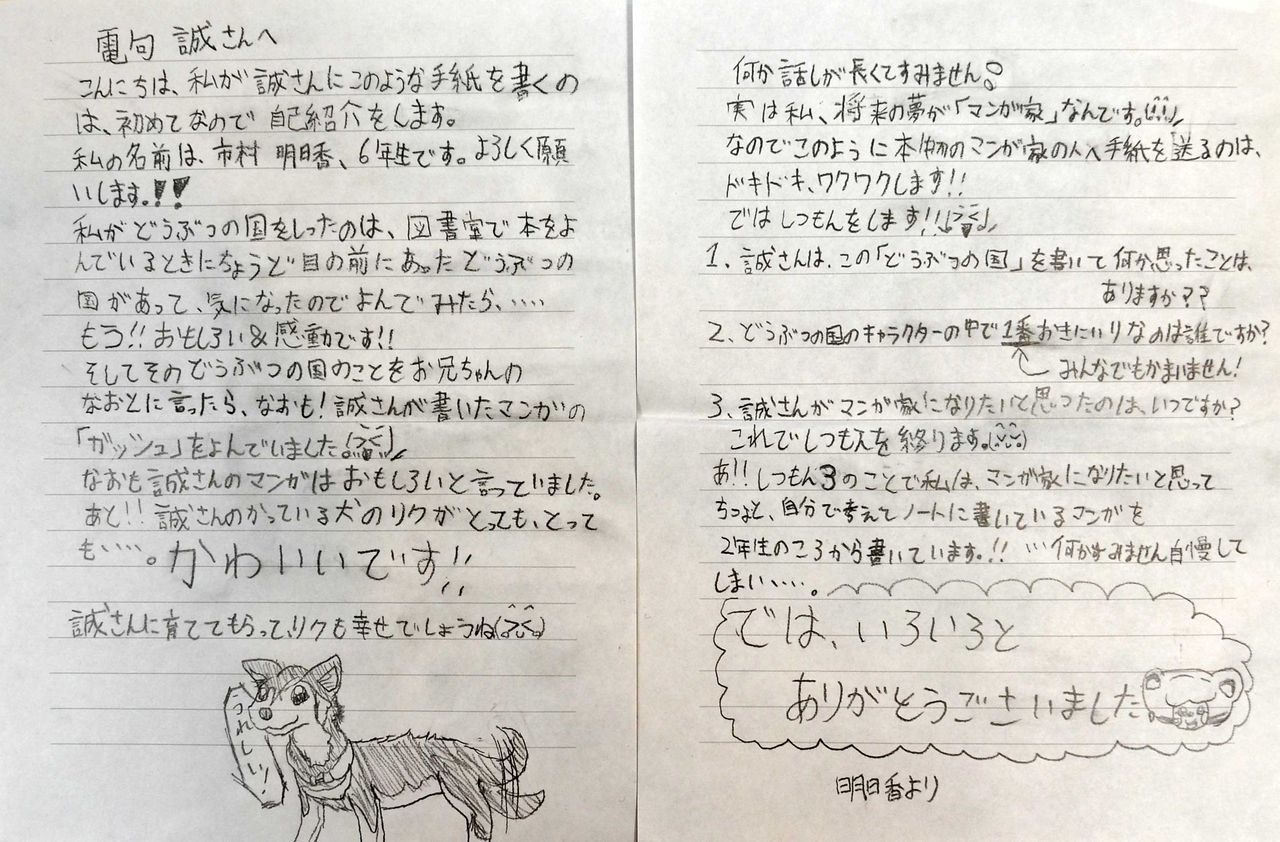 電句 誠さんへ
こんにちは、私が誠さんにこのような手紙を書くの
は、初めてなので自己紹介をします。
私の名前は、市村 明日香、6年生です。よろしく願
いします。!!
私がどうぶつの国をしったのは、図書室で本をよ
んでいるときにちょうど目の前にあったどうぶつの
国があって、気になったのでよんでみたら、‥‥
もう!!おもしろい&感動です!!
そしてそのどうぶつの国のことをお兄ちゃんの
なおとに言ったら、なおも!誠さんが書いたマンガの
「ガッシュ」をよんでいました
なおも誠さんのマンガはおもしろいと言っていました。
あと!!誠さんのかっている犬のリクがとっても、とって
も‥‥。かわいいです!!
誠さんに育ててもらって、リクも幸せでしょうね
うれしい!
何か話しが長くてすみません。
実は私、将来の夢が「マンガ家」なんです。
なのでこのように本物のマンガ家の人へ手紙を送るのは、
ドキドキ、ワクワクします!!
ではしつもんをします!!
1、誠さんは、この「どうぶつの国」を書いて何か思ったことは、
ありますか??
2、どうぶつの国のキャラクターの中で1番おきにいりなのは誰ですか?
みんなでもかまいません!
3、誠さんがマンガ家になりたいと思ったのは、いつですか?
これでしつもんを終ります。
あ!!しつもん3のことで私は、マンガ家になりたいと思って
ちょっと、自分で考えてノートに書いているマンガを
2年生のころから書いています。!! …何かすみません自慢して
しまい‥‥。
では、いろいろと
ありがとうございました。
明日香より